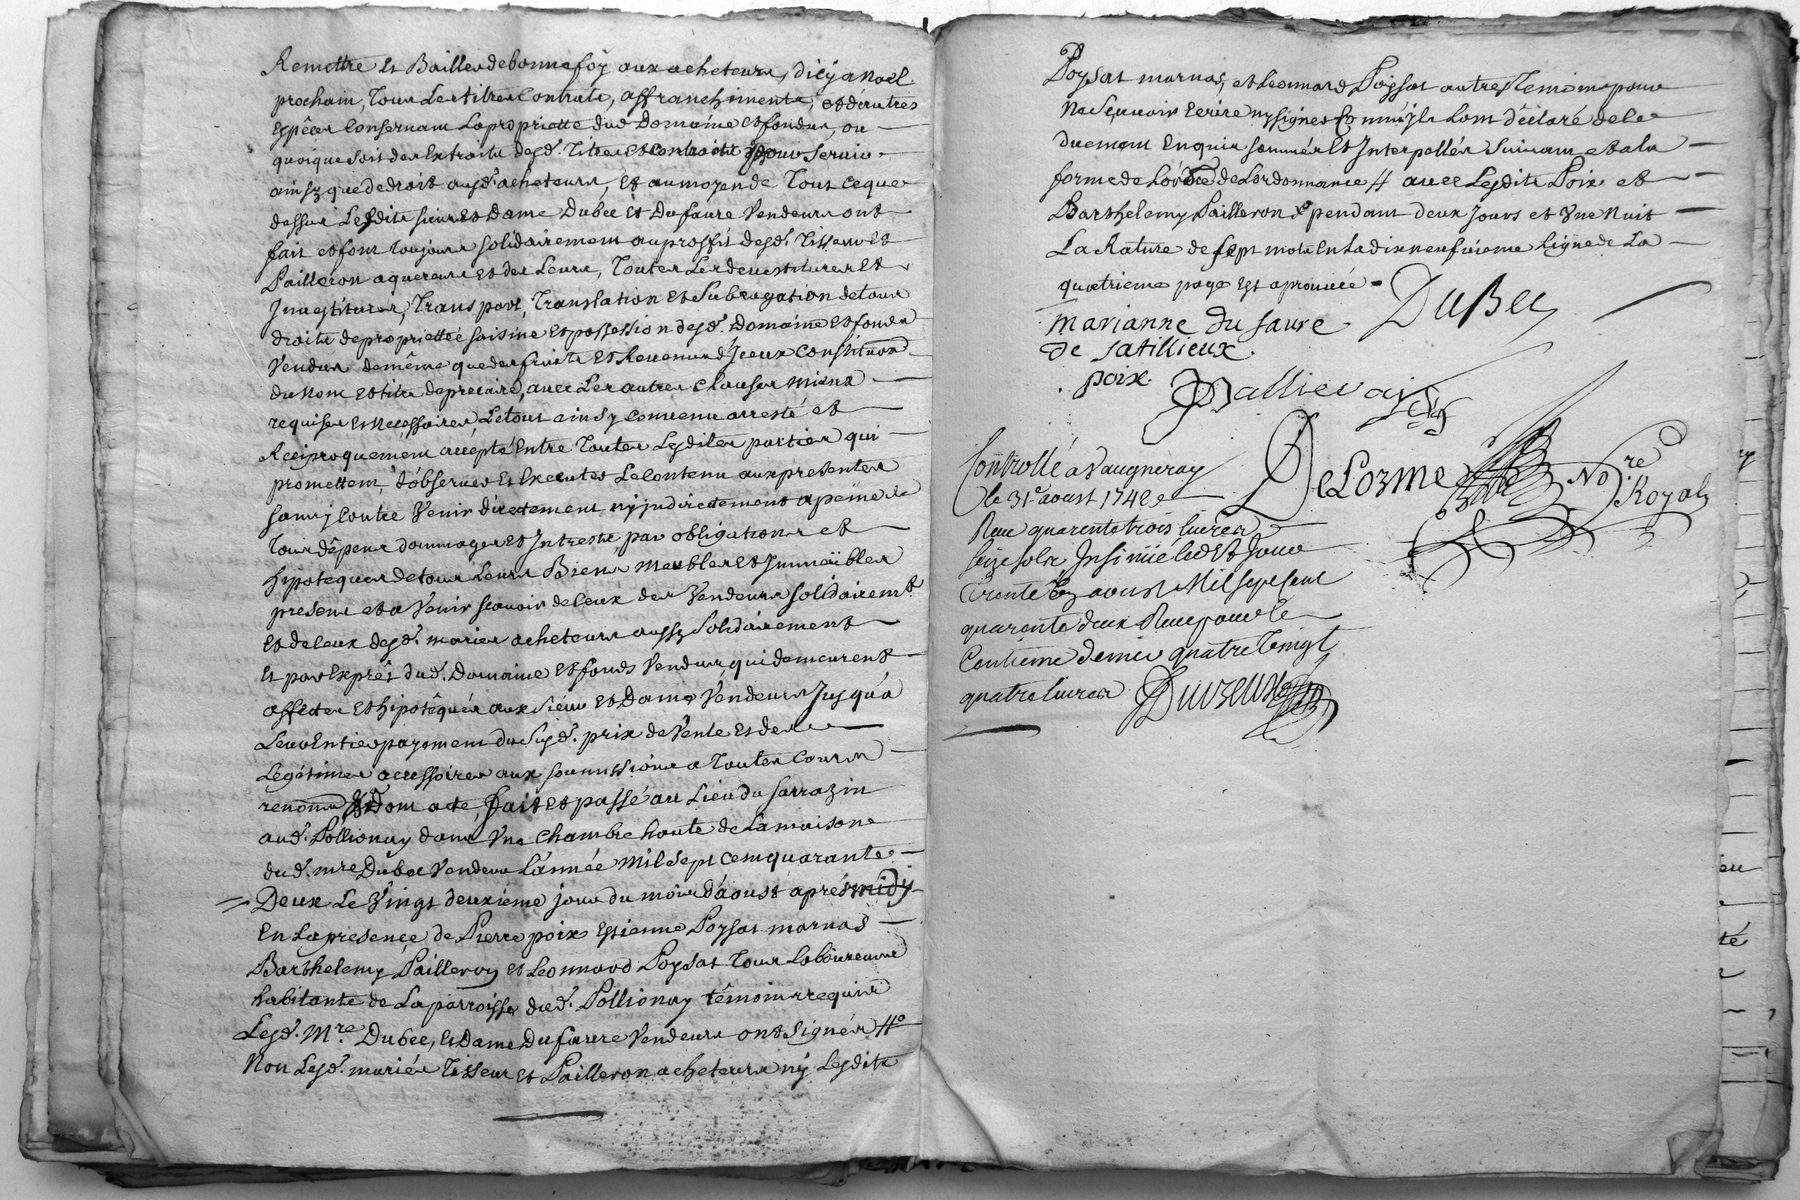 Remettre et Bailler de bonne foy aux acheteurs, d'icy a Noel
prochain, Tous Les titres Contrats, affranchiments, et d'autres
Espêces Consernant La proprietté dud. Domaine et fonds, ou
quoique soit des Extraits desd. Titres et contracts pour servir
ainsy que de droit ausd. acheteurs, Et au moyen de Tout ce que
dessus Lesdits sieur et Dame Dubec et Dufaure Vendeurs ont
fait et font Toujours solidairement au proffit desd. Tisseur et
Pailleron aquereurs et des Leurs, Toutes Les devestitures Et
Investitures, Transport, Translation et Subrogation de tous
droits de propriettée saisine et possession desd. Domaine et fonds
Vendus de même que des fruits et Revenus d'Iceux Constitution
du Nom et titre de precaire, avec Les autres clauses mieux
requises et Necessaires, Le tout ainsy convenu arresté et
Réciproquement accepté Entre Toutes Lesdites parties qui
promettent, d'observer et Executer Le Contenu aux presentes
sans y Contre Venir directement ny indirectement a peine de
Tous dêpens dommages et Intrests, par obligations et
hipoteques de tous Leurs Biens Meubles et Immeubles
present et a Venir scavoir de Ceux des Vendeurs solidairemt.
Et de Ceux desd. mariés acheteurs aussy solidairement
Et par Exprès dud. Domaine et fonds Vendus, qui demeurent
affectés et hipotêqués aux sieur et Dame Vendeurs Jusqu'a
Leur Entier payement du susd. prix de Vente et des
Legitimes accessoires aux soumissions a Toutes Cours
renom Dont acte, fait et passé au Lieu du sarrazin
aud. Pollionay dans Une Chambre haute de La maison
dud. mre Dubec Vendeur L'année mil sept cent quarante
Deux Le Vingt deuxième jour du mois d'aoust aprés midy
En La presence de Pierre poix Estienne Poysat marnas
Barthelemy Pailleron et Leonnard Poysat Tous Laboureurs
habitants de La parroisse dud. Pollionay têmoins requis
Lesd. Mre. Dubec, et Dame Dufaure Vendeurs ont signés #
Non Lesd. mariés Tisseur et Pailleron acheteurs ny Lesdits
Poysat marnas, et Leonnard Poysat autres Temoins pour
Ne sçavoir Ecrire ny signer Comme ils L'ont déclaré de ce
duement Enquis sommés et Interpellés suivant et a la
forme de L'ordonnance # avec Lesdits Poix et
Barthelemy Pailleron pendant deux jours et Une Nuit
La Rature de sept mots en La dix neufvieme Ligne de La
quatrieme page est aprouvée
DuBec
marianne du faure
de satillieux
poix
Controllé a Vaugneray
le 31e aoust 1742
DeLorme Nore. Royal
Reçu quarente trois livres
seize sols Insinué led. Et Jour
trente Un aoust Mil sept cent
quarente deux Reçu pour le
Centieme denier quatre Vingt
quatre livres